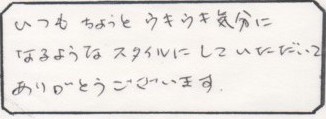 いつも ちょうと ウキウキ気分に
なるような スタイルに して いただいて
ありがとうございます.